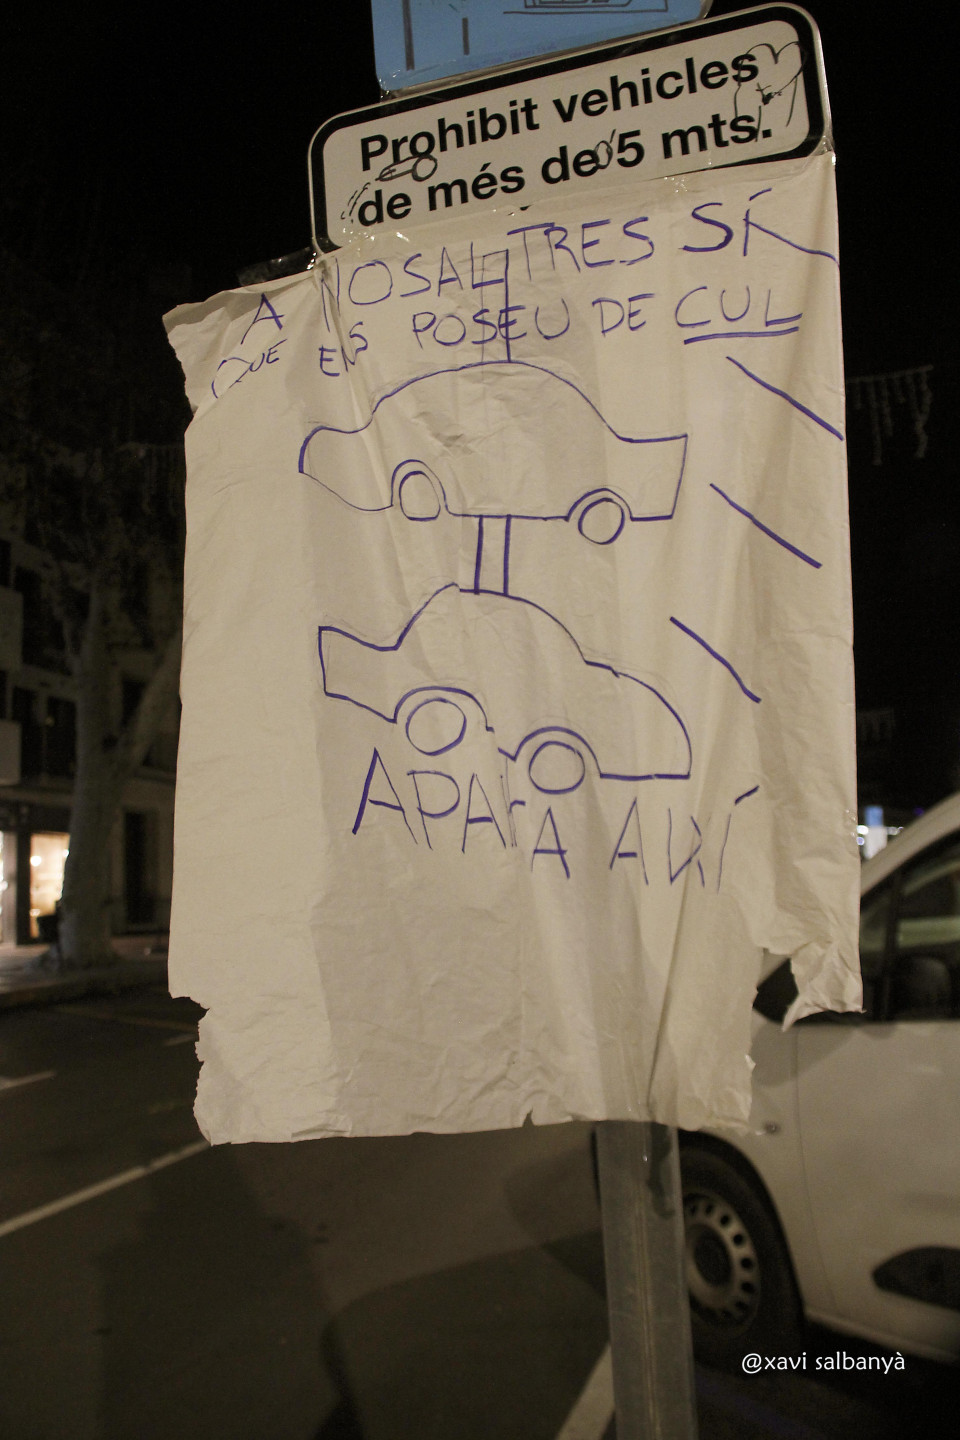 Prohibit vehicles
de més de 5 mts.
A NOSALTRES SÍ
QUE ENS POSEU DE CUL
APARCA AIXÍ
@xavi salbanyà